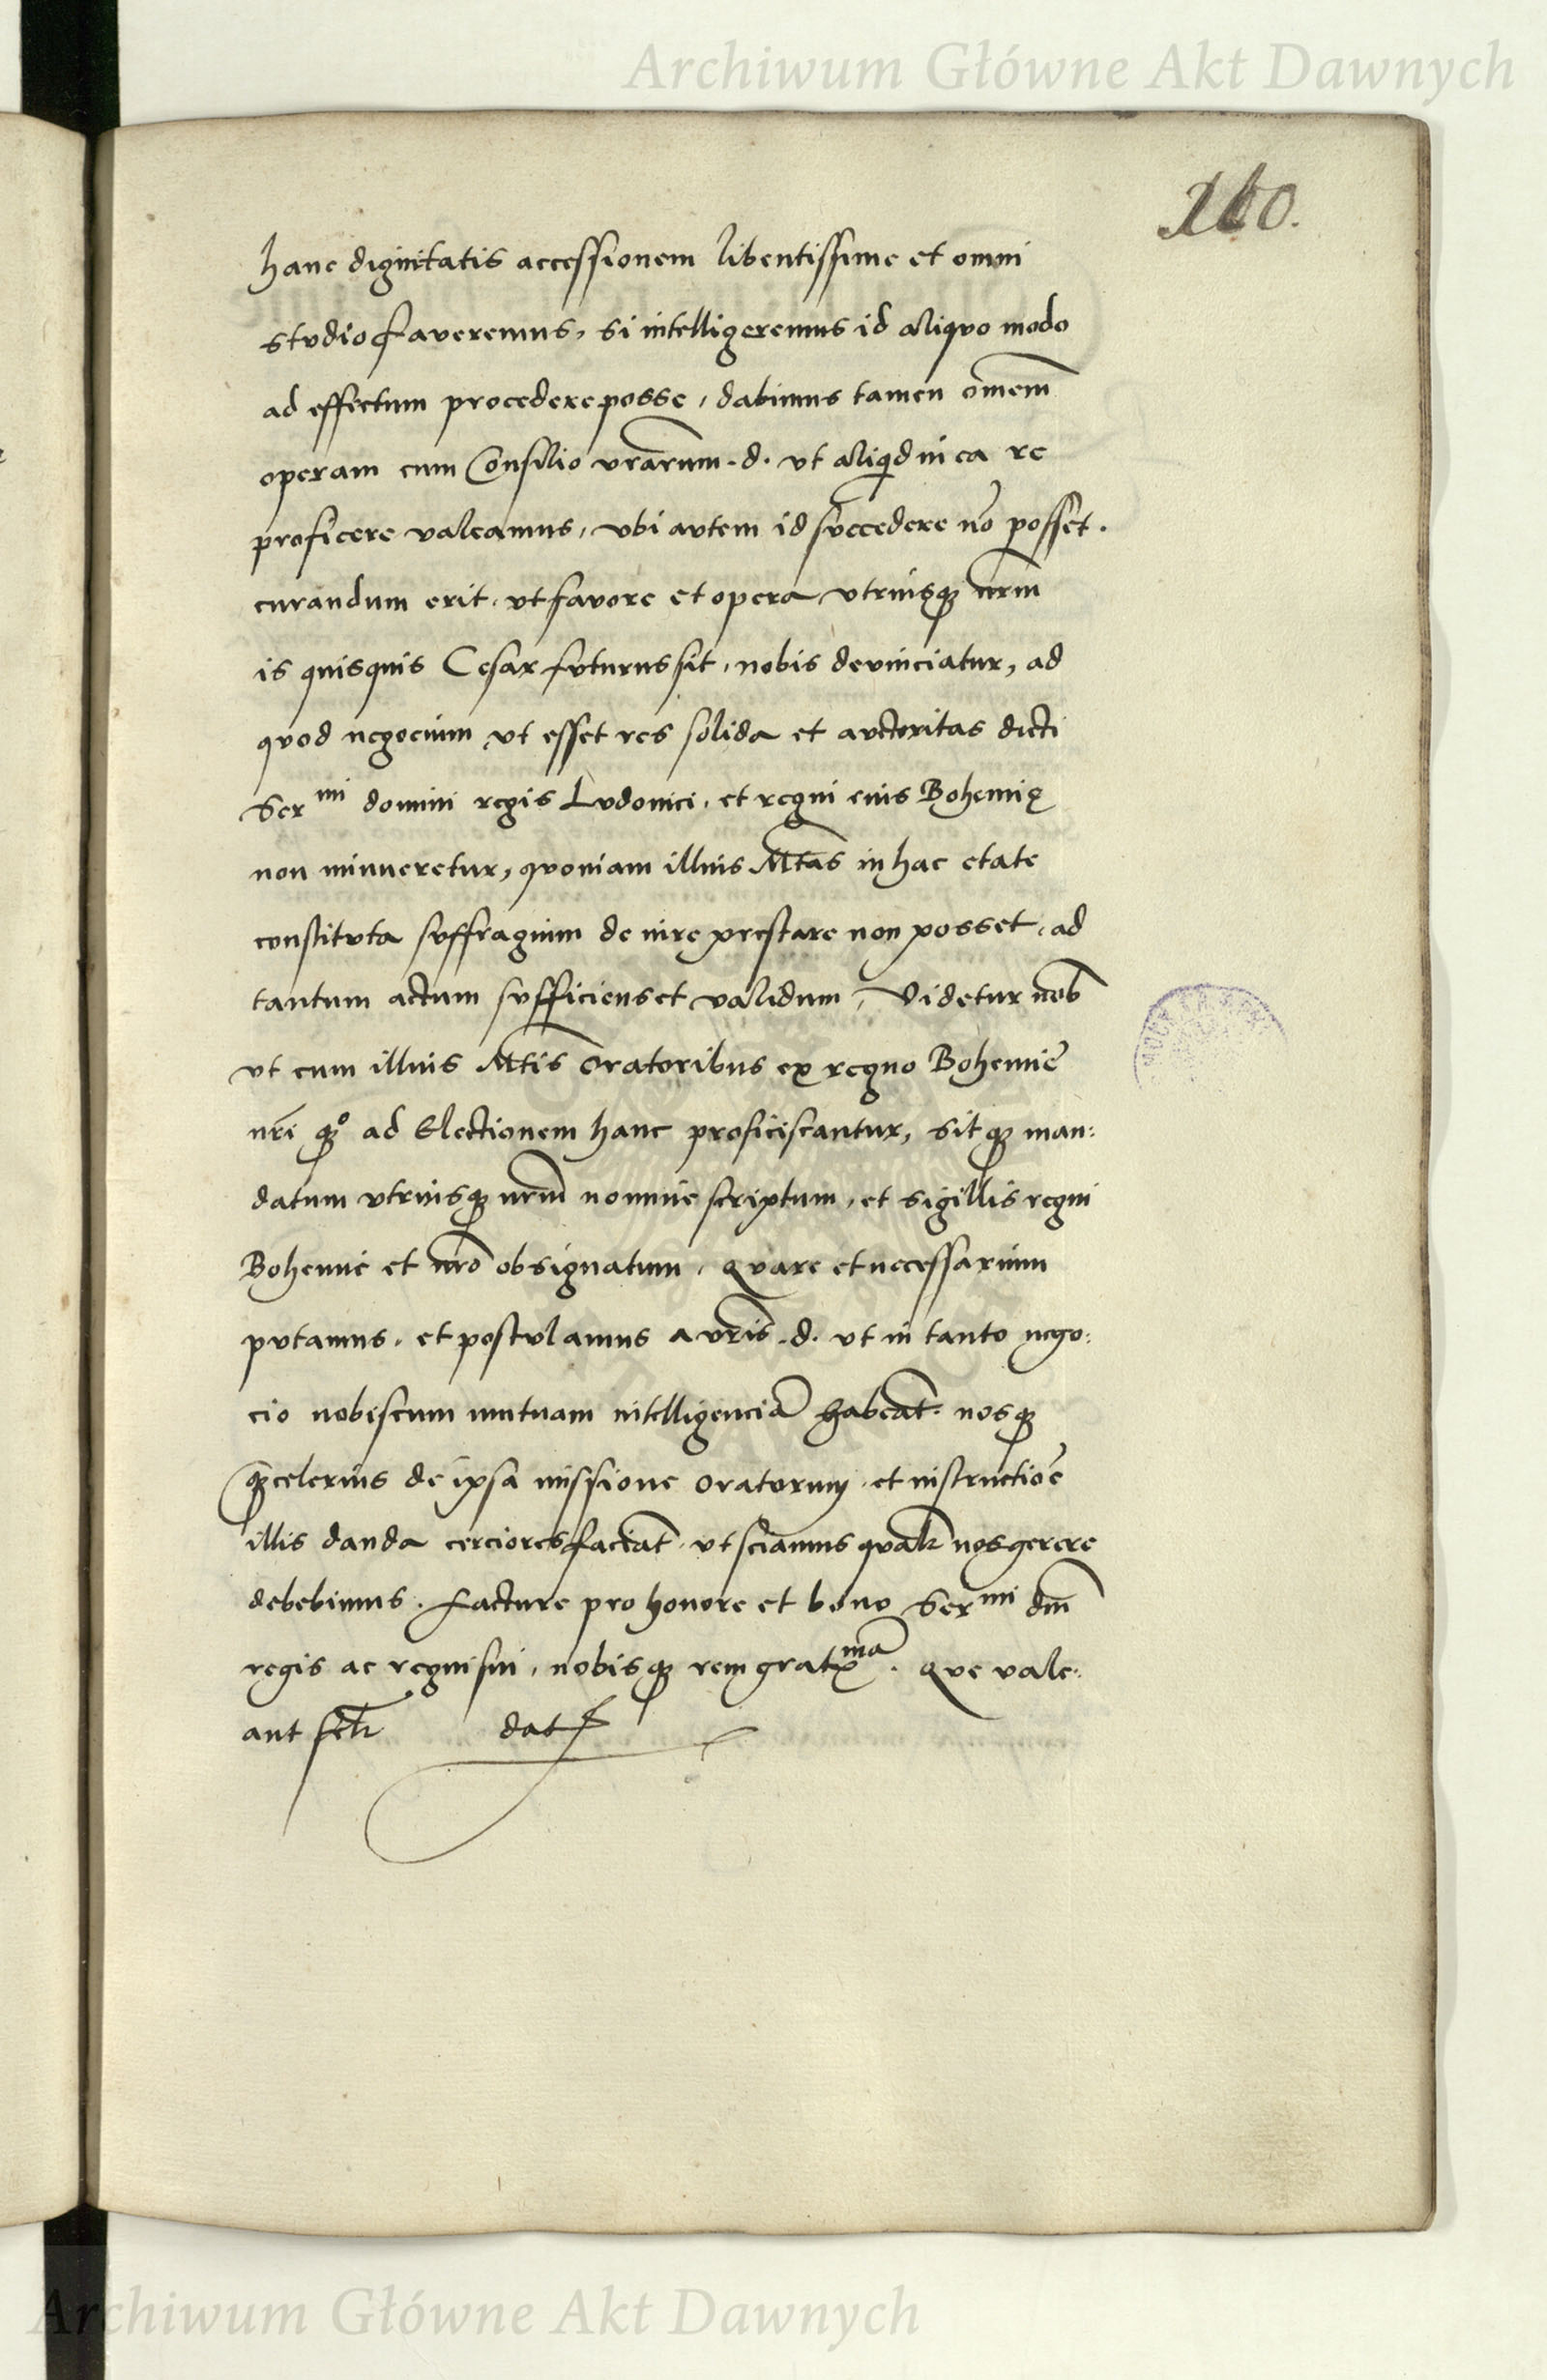 Archiwum Główne Akt Dawnych
160.
hanc dignitatis accessionem libentissime et omni
stvdio faveremus, si intelligeremus id aliqvo modo
ad effectum procedere posse, dabimus tamen om̅em
operam cum Consilio vr̅arum .d. vt aliq̇d in ea re
proficere valeamus, vbi avtem id svccedere no̅ posset.
curandum erit, vt favore et opera vtriusqꝫ nr̅m
is quisquis Cesar fvturus sit, nobis devinciatur, ad
qvod negocium vt esset res solida et avctoritas dicti
Ser mi domini regis Lvdovici, et regni eius Bohemię
non minueretur, qvoniam illius Mt̅as in hac etate
constitvta svffragium de iure prestare non posset, ad
tantum actum svfficiens et validum, Videtur nob̅
vt cum illius Mt̅is Oratoribus ex regno Bohemie
nr̅i qꝫo ad Electionem hanc proficiscantur, sitqꝫ man:
datum vtriusqꝫ nr̅m nomine scriptum, et sigillis regni
Bohemie et nr̅o obsignatum, qvare et necessarium
pvtamus, et postvlamus a vr̅is .d. vt in tanto nego:
cio nobiscum mutuam intelligencia̅ habea̅t. nosqꝫ
qꝫcelerius de ipsa missione oratorum, et instructio̅e
illis danda cerciores facia̅t, vt sciamus qvalr̅ nos gerere
debebimus. Facture pro honore et bono Ser mi dn̅i
regis ac regni sui, nobisqꝫ rem gratx̅ma. Qve vale:
ant felr̅ dat
Archiwum Główne Akt Dawnych